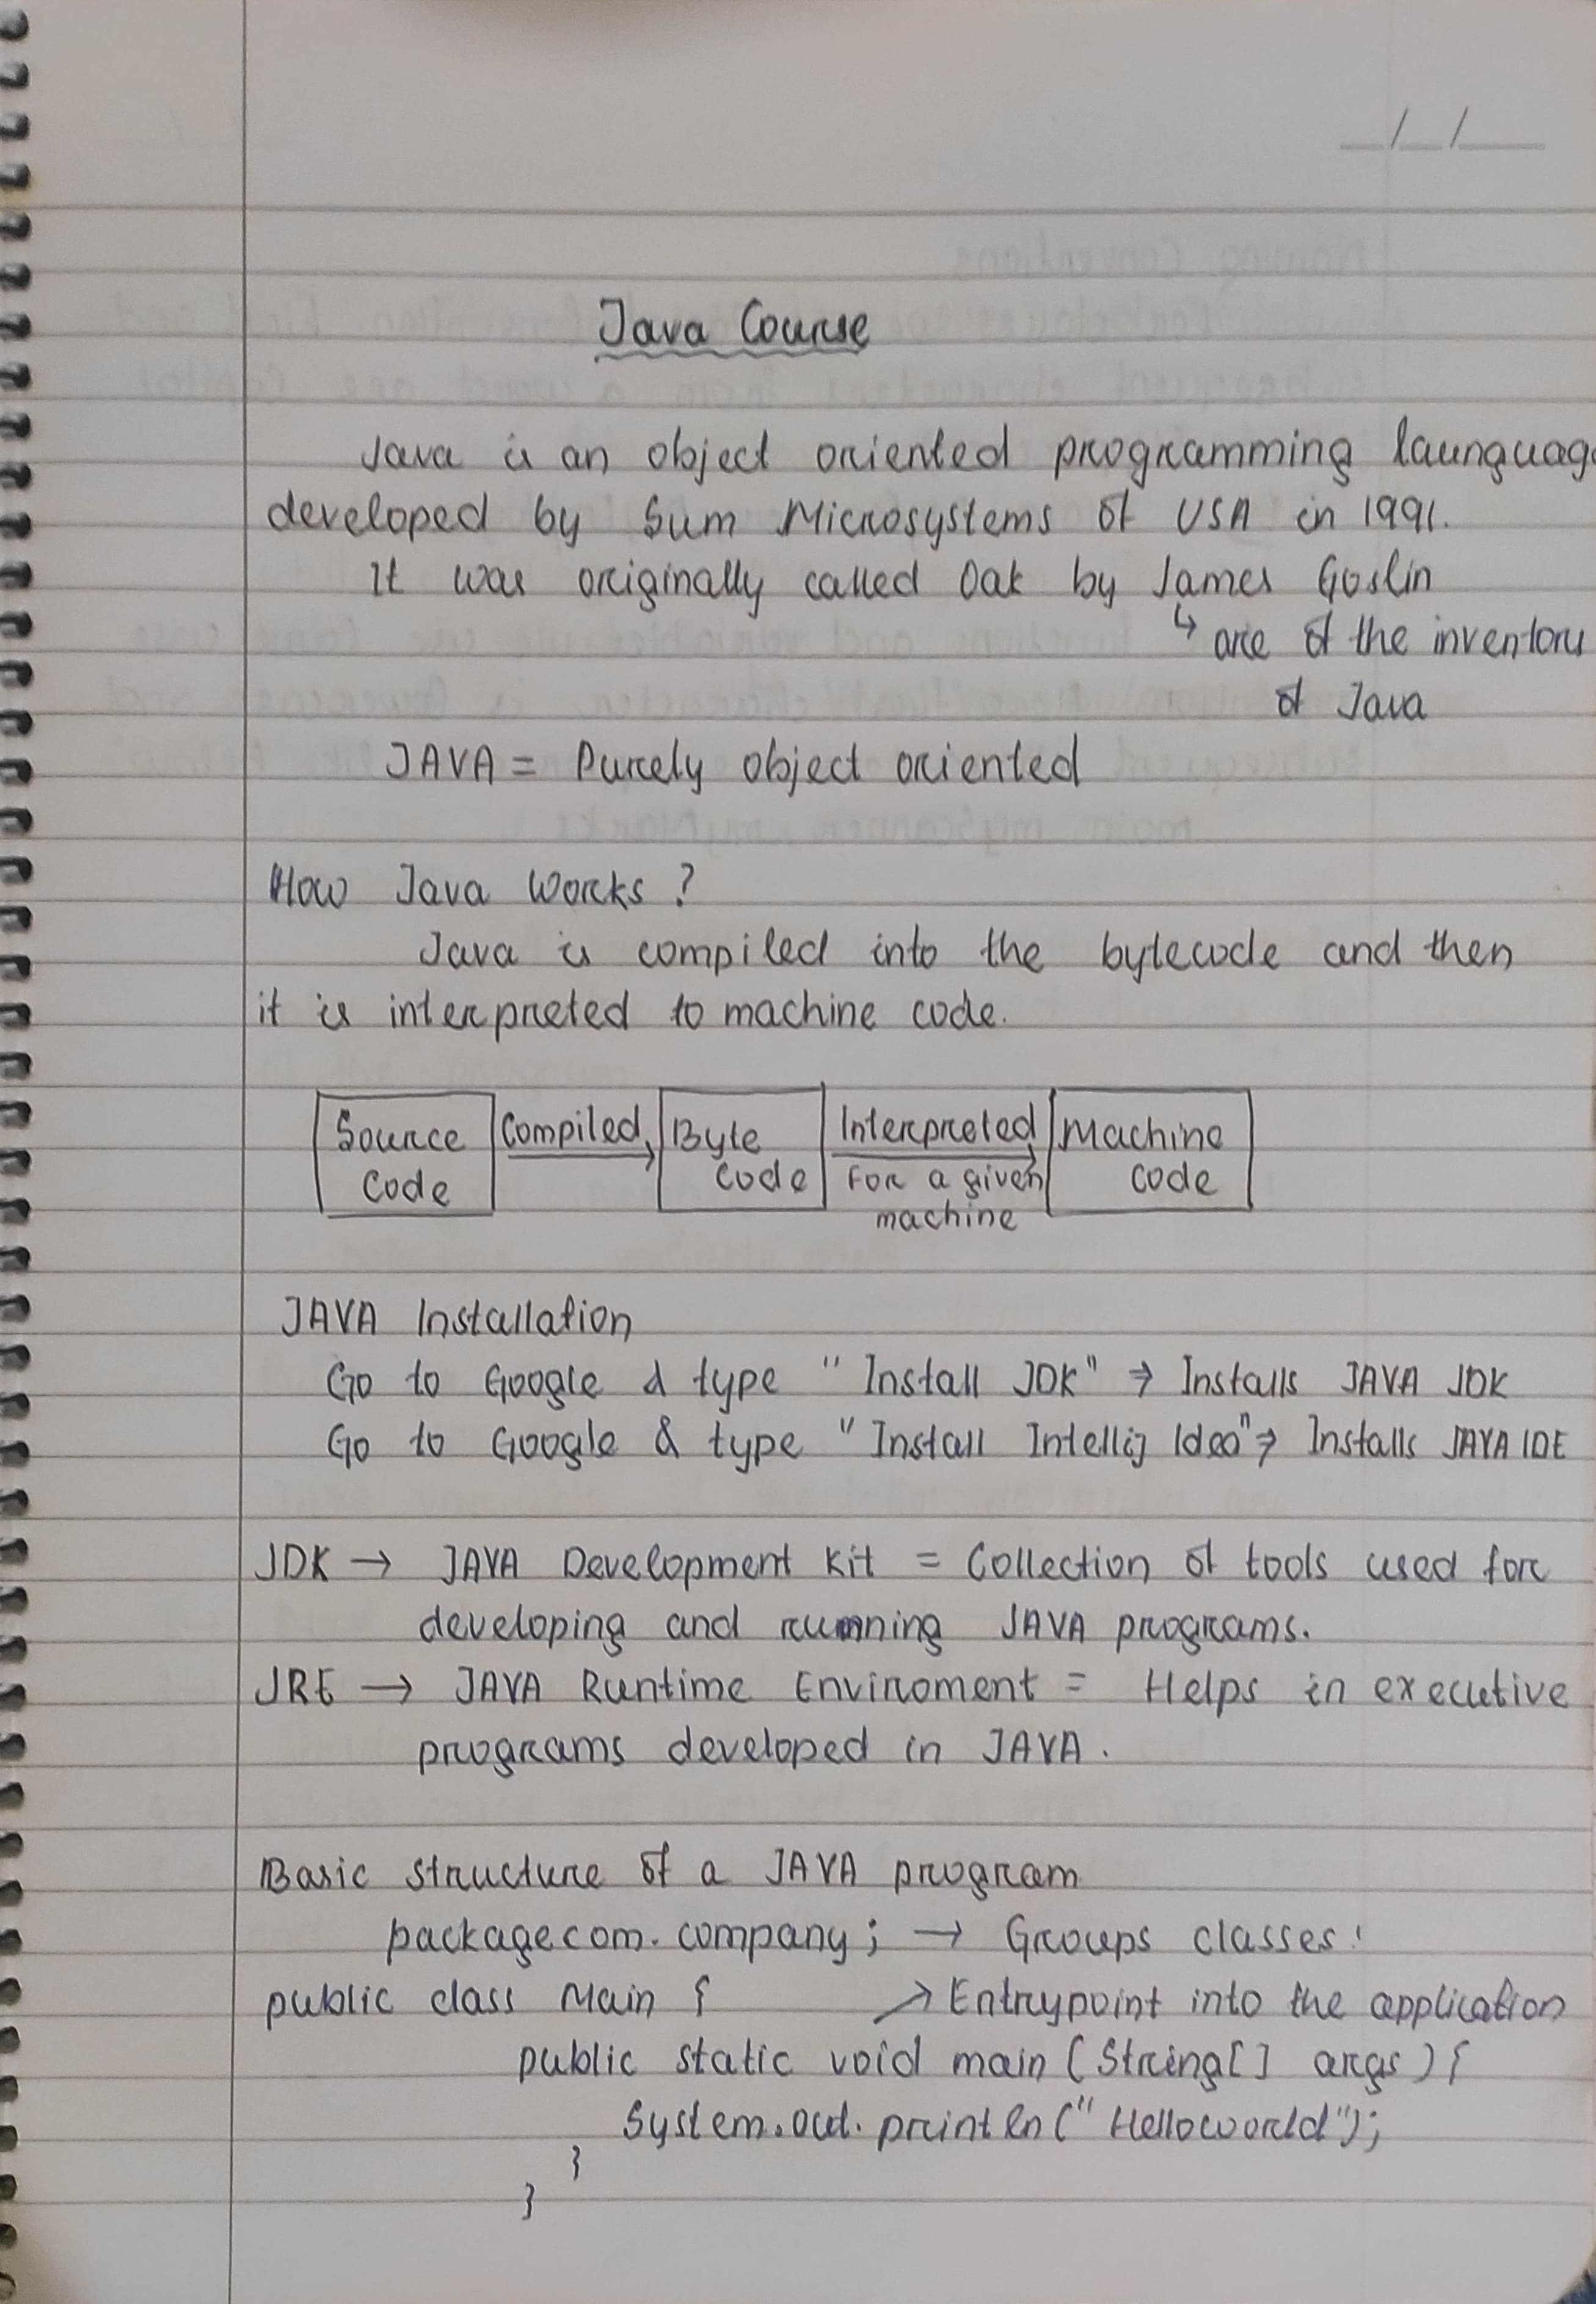 Java Course
Java is an object oriented programming launguag
developed by Sum Microsystems of USA in 1991.
It was originally called Oak by James Goslin
↳ one of the inventors
of Java
JAVA = Purely object oriented
How Java Works ?
Java is compiled into the bytecode and then
it is interpreted to machine code.
Source Compiled Byte Interpreted Machine
Code Code For a given Code
machine
JAVA Installation
Go to Google & type "Install JDK" ⇒ Installs JAVA JDK
Go to Google & type "Install Intellij Idea" ⇒ Installs JAVA IDE
JDK → JAVA Development Kit = Collection of tools used for
developing and running JAVA programs.
JRE → JAVA Runtime Enviroment = Helps in executive
programs developed in JAVA.
Basic structure of a JAVA program
package com. company ; → Groups classes!
public class Main { ↗ Entrypoint into the application
public static void main (String[] args) {
System.out. println (" Helloworld");
}
}